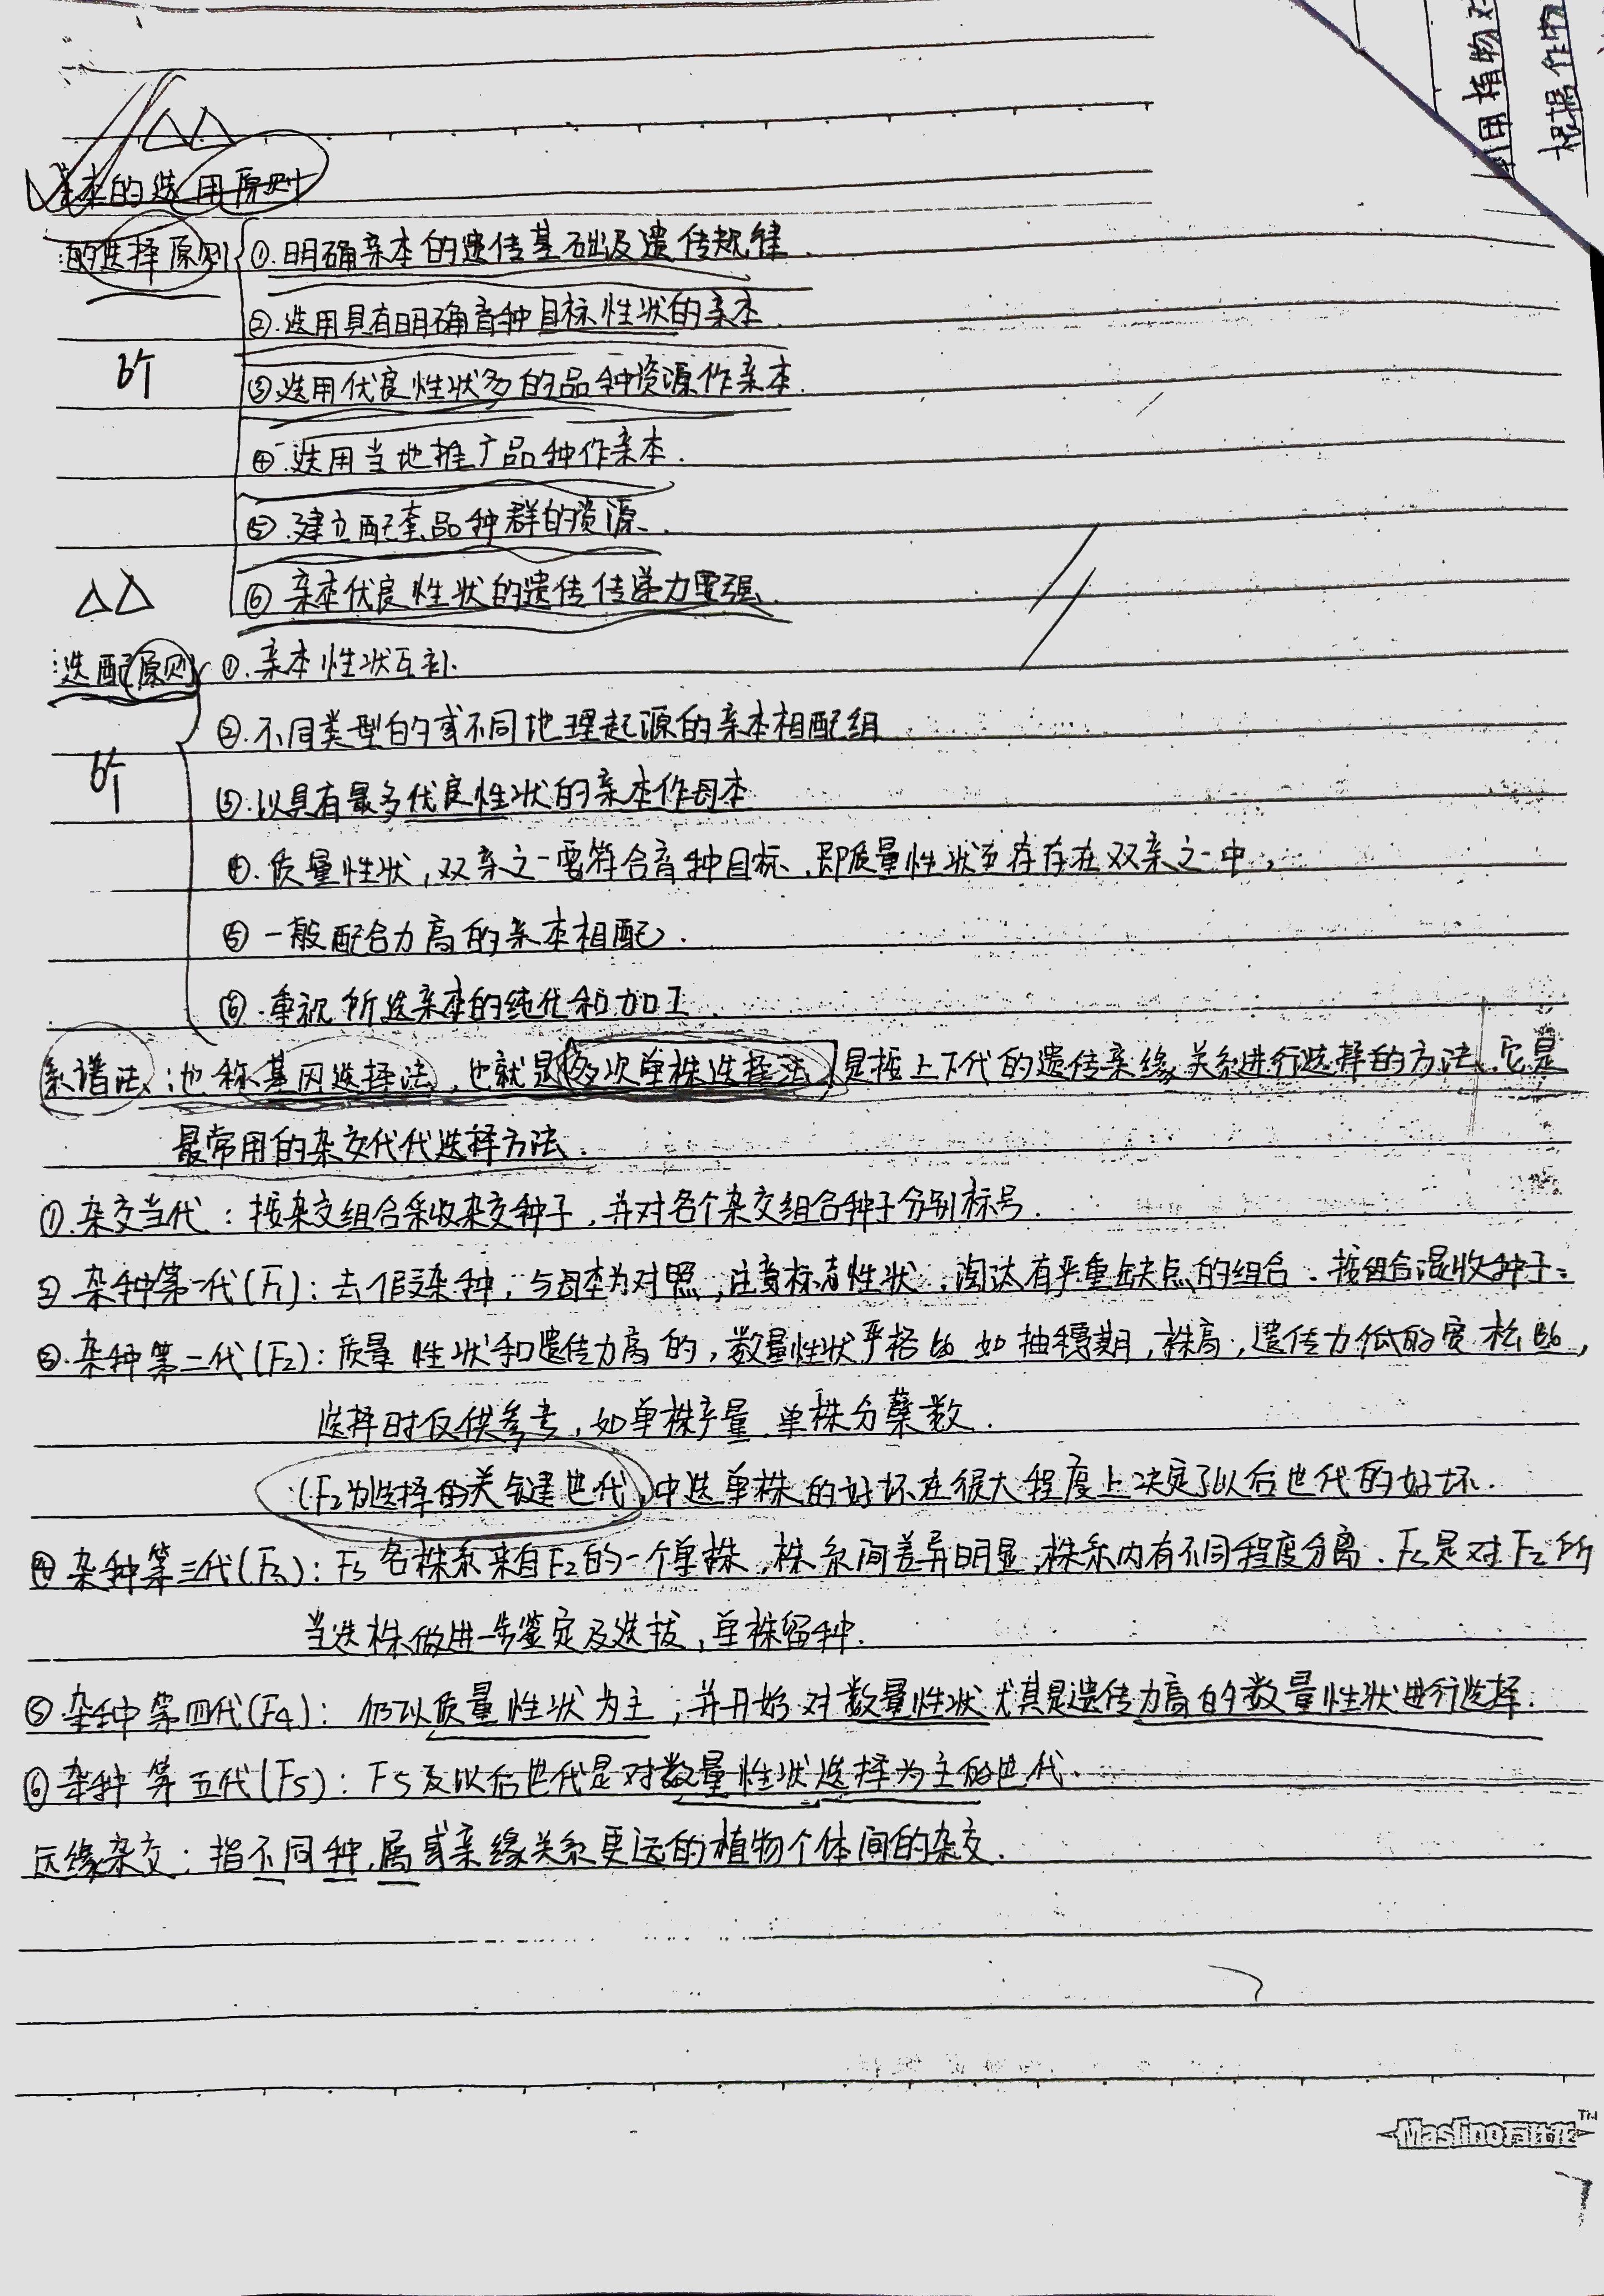 利用植物
根据作物
亲本的选用原则
的选择原则 ①.明确亲本的遗传基础及遗传规律.
②.选用具有明确育种目标性状的亲本.
6个 ③.选用优良性状多的品种资源作亲本.
④.选用当地推广品种作亲本.
⑤.建立配套品种群的资源.
⑥ 亲本优良性状的遗传传递力要强.
选配原则 ①.亲本性状互补.
②.不同类型的或不同地理起源的亲本相配组
6个 ③.以具有最多优良性状的亲本作母本
④.质量性状,双亲之一要符合育种目标.即质量性状 存在双亲之中,
⑤ 一般配合力高的亲本相配.
⑥.重视所选亲本的纯化和加工.
系谱法:也称基因选择法,也就是多次单株选择法 是按上下代的遗传亲缘关系进行选择的方法.它是
最常用的杂交代代选择方法.
①.杂交当代:按杂交组合采收杂交种子,并对各个杂交组合种子分别标号.
② 杂种第一代(F1):去假杂种,与母本为对照,注意标志性状,淘汰有严重缺点的组合.按组合混收种子.
③.杂种第二代(F2):质量性状和遗传力高的,数量性状严格些 如抽穗期,株高;遗传力低的宽松些,
选择时仅供参考,如单株产量.单株分蘖数.
(F2为选择的关键世代)中选单株的好坏在很大程度上决定了以后世代的好坏.
④ 杂种第三代(F3):F3各株系来自F2的一个单株,株系间差异明显,株系内有不同程度分离.F3是对F2所
当选株做进一步鉴定及选拔,单株留种.
⑤ 杂种第四代(F4):仍以质量性状为主;并开始对数量性状尤其是遗传力高的数量性状进行选择.
⑥ 杂种第五代(F5):F5及以后世代是对数量性状选择为主的世代.
远缘杂交:指不同种,属或亲缘关系更远的植物个体间的杂交.
Maslino玛仕龙™